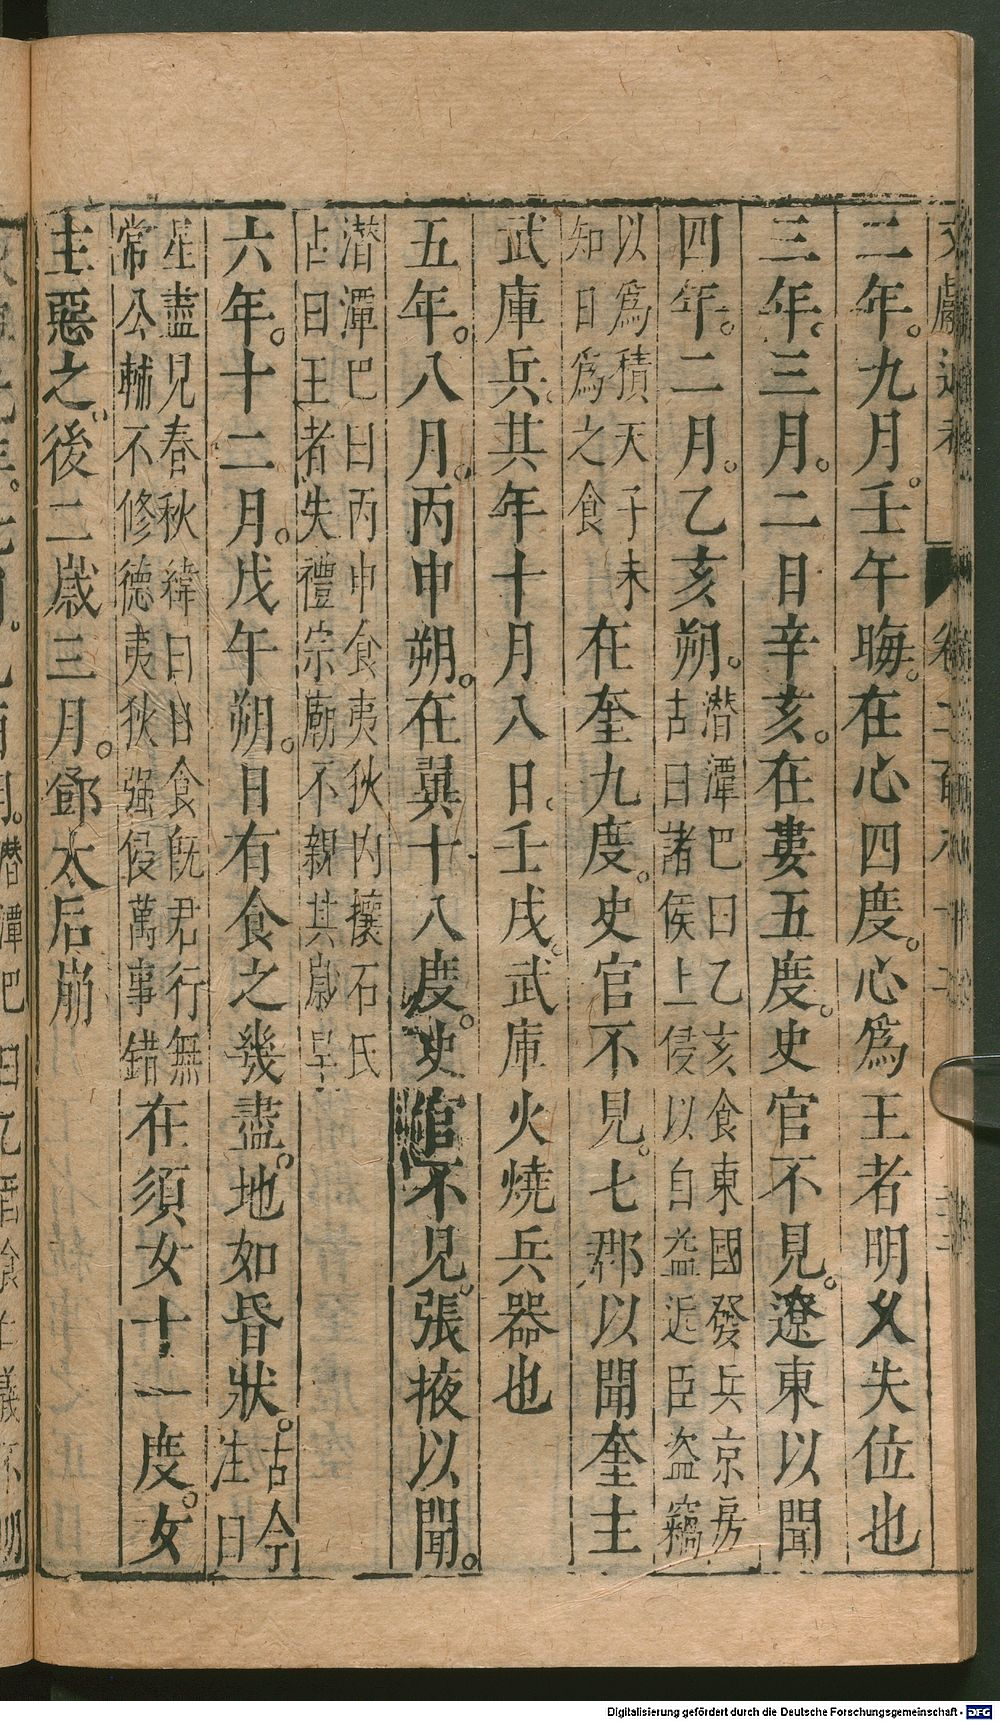 二年。九月。壬午晦。在心四度。心爲王者明乂失位也
三年。三月。二日辛亥。在婁五度。史官不見。遼東以聞
四年。二月。乙亥朔。潛潭巴曰乙亥食東國發兵京房
占曰諸侯上侵以自益近臣盜竊
以爲積天子未
知日爲之食
在奎九度。史官不見。七郡以聞奎主
武庫兵。其年十月八日。壬戌。武庫火燒兵器也
五年。八月。丙申朔。在翼十八度。史官不見。張掖以聞。
潛潭巴曰丙申食夷狄內攘石氏
占曰王者失禮宗廟不親其歲旱
六年。十二月。戊午朔。日有食之幾盡。地如昏狀。古今
注曰
星盡見春秋緯曰日食旣君行無
常公輔不修德夷狄强侵萬事錯
在須女十一度。女
主惡之。後二歲三月。鄧太后崩
Digitalisierung gefördert durch die Deutsche Forschungsgemeinschaft - DFG